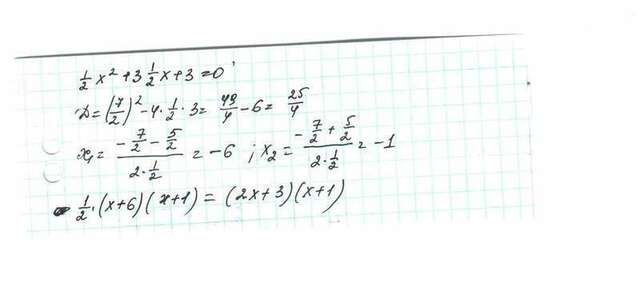 ½x² + 3½x + 3 = 0
D = (7/2)² - 4 · ½ · 3 = 49/4 - 6 = 25/4
x₁ = (-7/2 - 5/2)/(2 · ½) = -6 ; x₂ = (-7/2 + 5/2)/(2 · ½) = -1
½ · (x+6)(x+1) = (2x+3)(x+1)